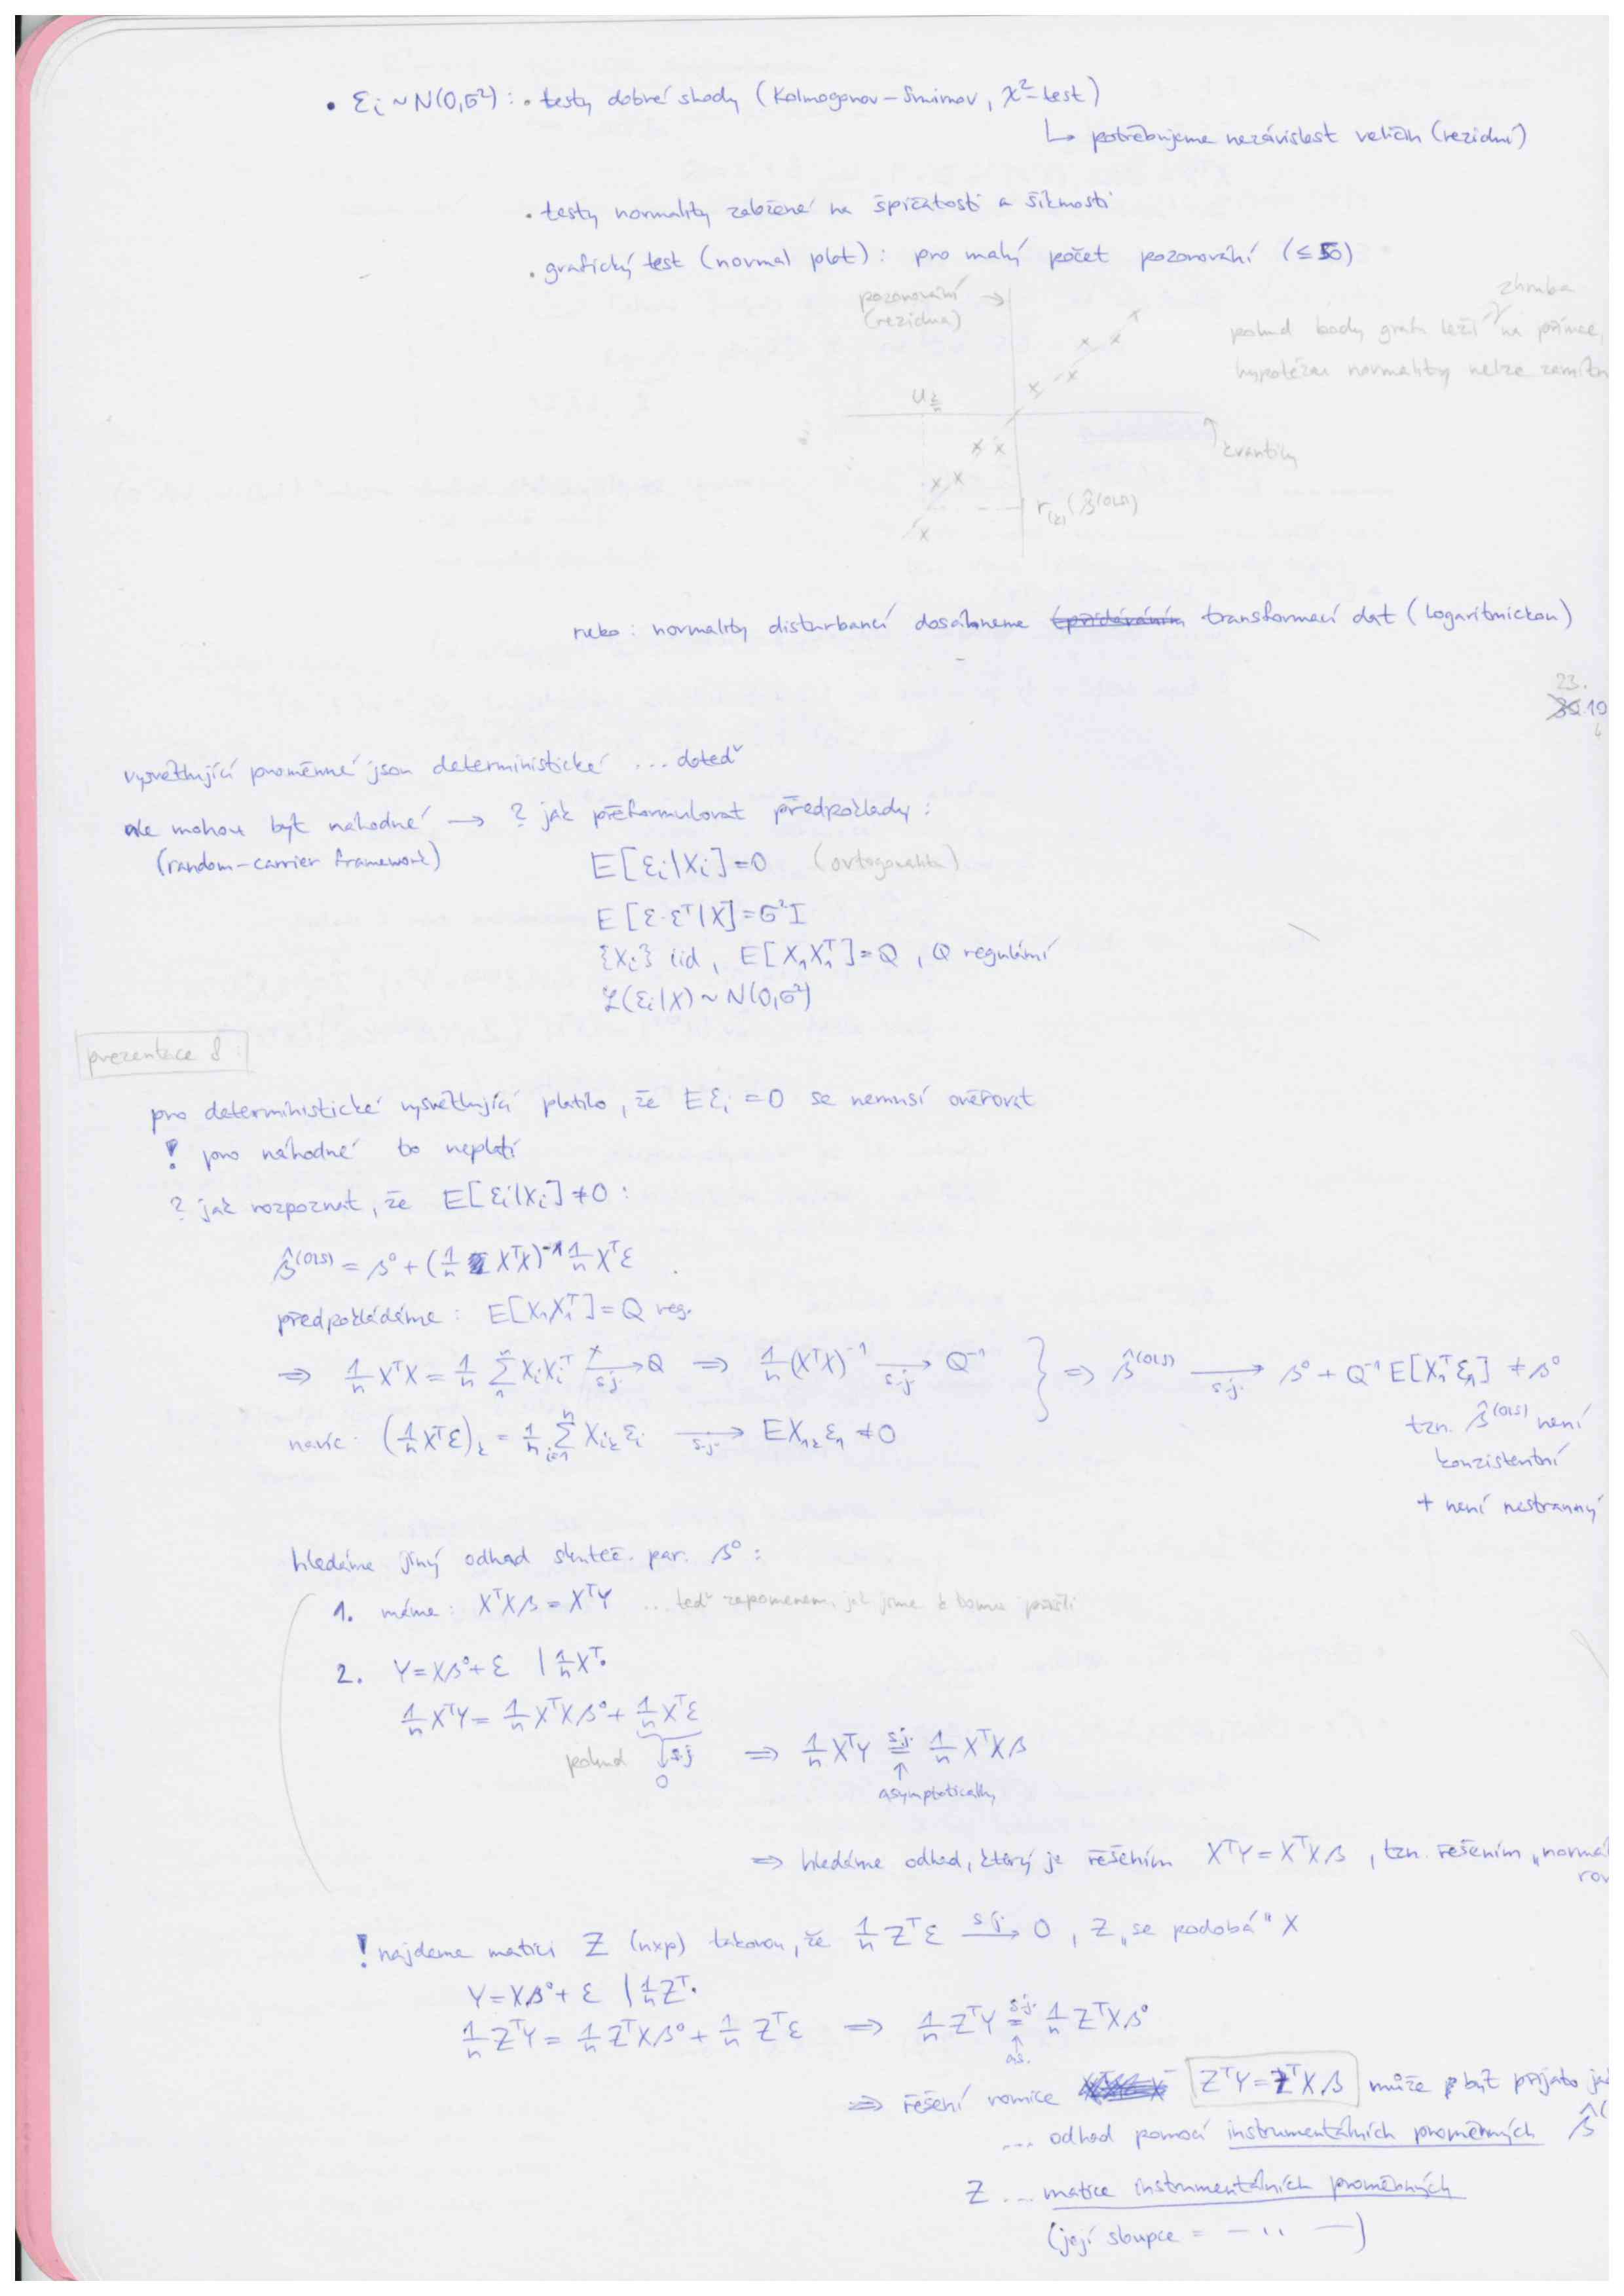 • Ɛi ~ N(0,σ²) : • testy dobré shody (Kolmogorov – Smirnov, χ²-test)
↳ potřebujeme nezávislost veličin (reziduí)
• testy normality založené na špičatosti a šikmosti
• grafický test (normal plot) : pro malý počet pozorování (≤ 50)
pozorování → (rezidua)
zhruba
pokud body grafu leží na přímce,
hypotézu normality nelze zamítn
u_{k/n}
kvantily
r_{(k)}(β̂^{(OLS)})
nebo : normality disturbancí dosáhneme transformací dat (logaritmickou)
23.
10
vysvětlující proměnné jsou deterministické ... doteď
ale mohou být náhodné → ? jak přeformulovat předpoklady :
(random-carrier framework)
E[Ɛi|Xi] = 0 (ortogonalita)
E[Ɛ·Ɛ^T|X] = σ²I
{Xi} iid, E[X₁X₁^T] = Q, Q regulární
ℒ(Ɛi|X) ~ N(0,σ²)
prezentace 8 :
pro deterministické vysvětlující platilo, že EƐi = 0 se nemusí ověřovat
! pro náhodné to neplatí
? jak rozpoznat, že E[Ɛi|Xi] ≠ 0 :
β̂^{(OLS)} = β⁰ + (1/n X^TX)^{-1} 1/n X^TƐ
předpokládáme : E[X₁X₁^T] = Q reg.
⇒ 1/n X^TX = 1/n Σ₁ⁿ XiXi^T →(s.j.) Q ⇒ 1/n (X^TX)^{-1} →(s.j.) Q^{-1} } ⇒ β̂^{(OLS)} →(s.j.) β⁰ + Q^{-1}E[X₁^TƐ₁] ≠ β⁰
navíc : (1/n X^TƐ)_k = 1/n Σ_{i=1}^n X_{ik}Ɛi →(s.j.) EX_{1k}Ɛ₁ ≠ 0
tzn. β̂^{(OLS)} není
konzistentní
+ není nestranný
hledáme jiný odhad skuteč. par. β⁰ :
1. máme : X^TXβ = X^TY ... teď zapomeneme, jak jsme k tomu přišli
2. Y = Xβ⁰ + Ɛ | 1/n X^T·
1/n X^TY = 1/n X^TXβ⁰ + 1/n X^TƐ
pokud ↓ s.j. 0 ⇒ 1/n X^TY =(s.j.) 1/n X^TXβ
↑ asymptotically
⇒ hledáme odhad, který je řešením X^TY = X^TXβ, tzn. řešením „normál
rov
! najdeme matici Z (n×p) takovou, že 1/n Z^TƐ →(s.j.) 0, Z „se podobá" X
Y = Xβ⁰ + Ɛ | 1/n Z^T·
1/n Z^TY = 1/n Z^TXβ⁰ + 1/n Z^TƐ ⇒ 1/n Z^TY =(s.j.) 1/n Z^TXβ⁰
↑ as.
⇒ řešení rovnice Z^TY = Z^TXβ může být přijato ja
... odhad pomocí instrumentálních proměnných β̂^(
Z ... matice instrumentálních proměnných
(její sloupce = — ·· —)